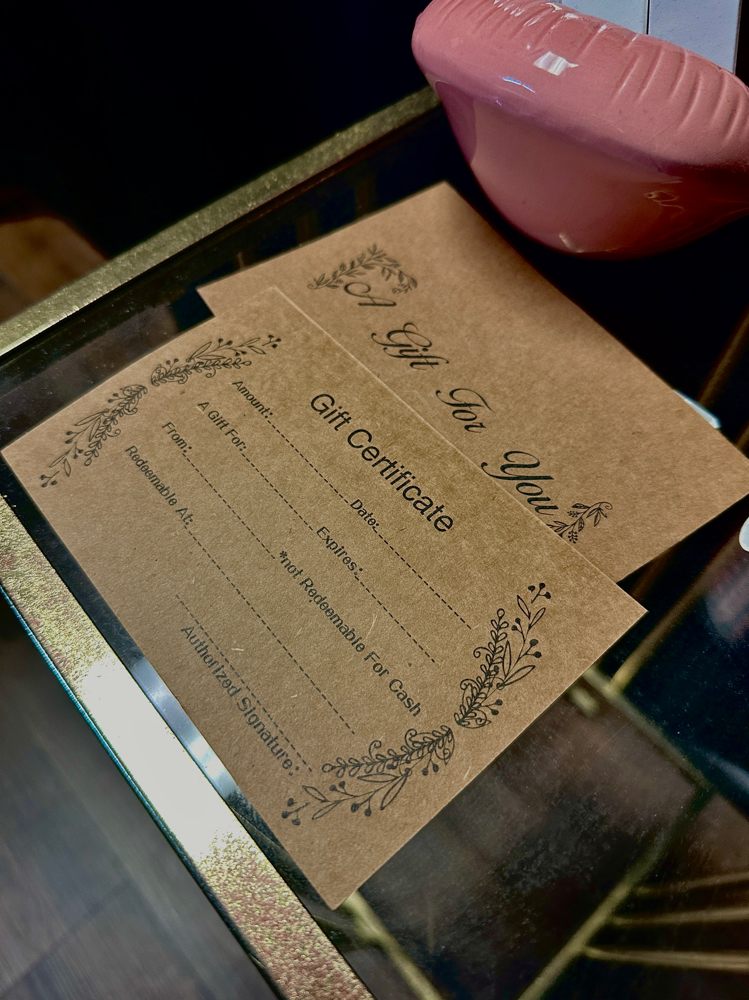 A Gift For You
Gift Certificate
Amount: Date:
A Gift For: Expires:
From: *not Redeemable For Cash
Redeemable At:
Authorized Signature: